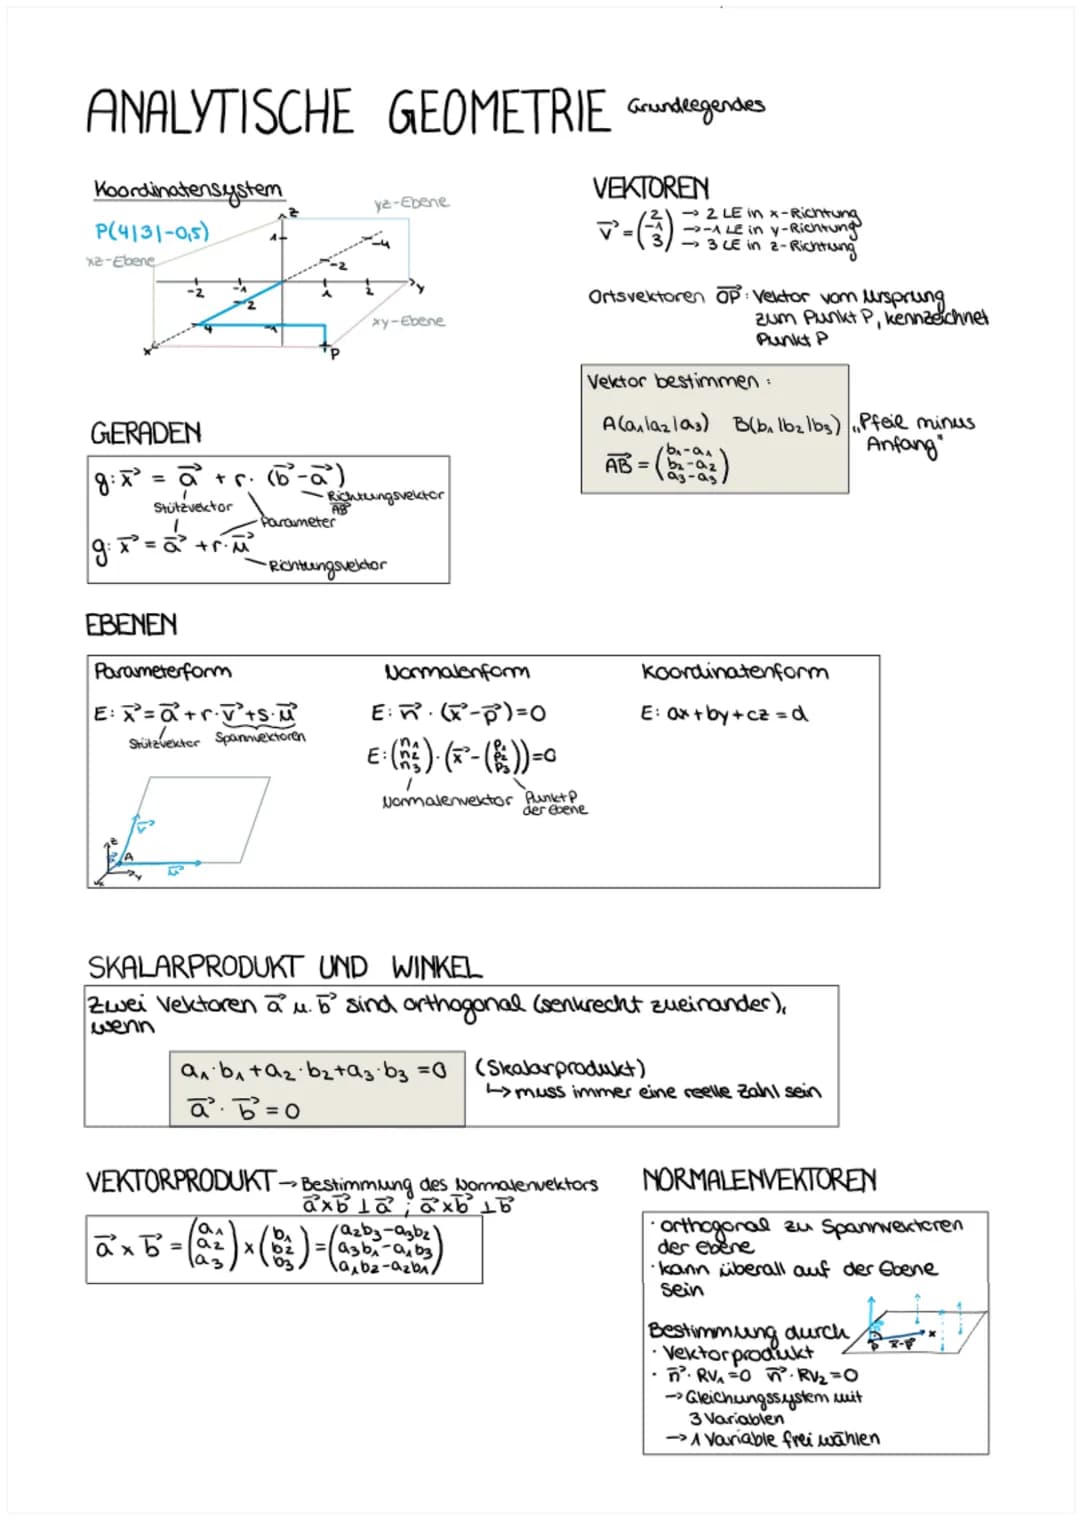 ANALYTISCHE GEOMETRIE Grundlegendes
Koordinatensystem
P(4|3|-0,5)
xz-Ebene
yz-Ebene
xy-Ebene
z
1
-4
-2
-2
-1
1
2
y
2
4
-1
x
P
VEKTOREN
v⃗ = (2 -1 3) → 2 LE in x-Richtung
→ -1 LE in y-Richtung
→ 3 LE in z-Richtung
Ortsvektoren OP⃗ : Vektor vom Ursprung
zum Punkt P, kennzeichnet
Punkt P
Vektor bestimmen :
A(a₁|a₂|a₃) B(b₁|b₂|b₃) „Pfeil minus
Anfang"
AB⃗ = (b₁-a₁ b₂-a₂ a₃-a₃)
GERADEN
g: x⃗ = a⃗ + r · (b⃗ - a⃗)
Stützvektor
Richtungsvektor
AB⃗
Parameter
g: x⃗ = a⃗ + r · u⃗
Richtungsvektor
EBENEN
Parameterform
E: x⃗ = a⃗ + r · v⃗ + s · u⃗
Stützvektor Spannvektoren
v⃗
z
A
y
x
u⃗
Normalenform
E: n⃗ · (x⃗ - p⃗) = 0
E: (n₁ n₂ n₃) · (x⃗ - (p₁ p₂ p₃)) = 0
Normalenvektor Punkt P
der Ebene
Koordinatenform
E: ax + by + cz = d
SKALARPRODUKT UND WINKEL
Zwei Vektoren a⃗ u. b⃗ sind orthogonal (senkrecht zueinander),
wenn
a₁·b₁+a₂·b₂+a₃·b₃ = 0 (Skalarprodukt)
↳ muss immer eine reelle Zahl sein
a⃗ · b⃗ = 0
VEKTORPRODUKT → Bestimmung des Normalenvektors
a⃗×b⃗ ⊥ a⃗ ; a⃗×b⃗ ⊥ b⃗
a⃗ × b⃗ = (a₁ a₂ a₃) × (b₁ b₂ b₃) = (a₂b₃-a₃b₂ a₃b₁-a₁b₃ a₁b₂-a₂b₁)
NORMALENVEKTOREN
· orthogonal zu Spannvektoren
der Ebene
· kann überall auf der Ebene
sein
Bestimmung durch
· Vektorprodukt
P x⃗-p⃗ x
· n⃗ · RV₁ = 0 n⃗ · RV₂ = 0
→ Gleichungssystem mit
3 Variablen
→ 1 Variable frei wählen